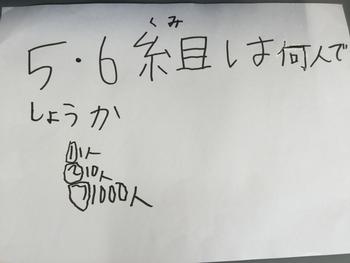 くみ
5・6組は何人で
しょうか
①1人
②10人
③1000人